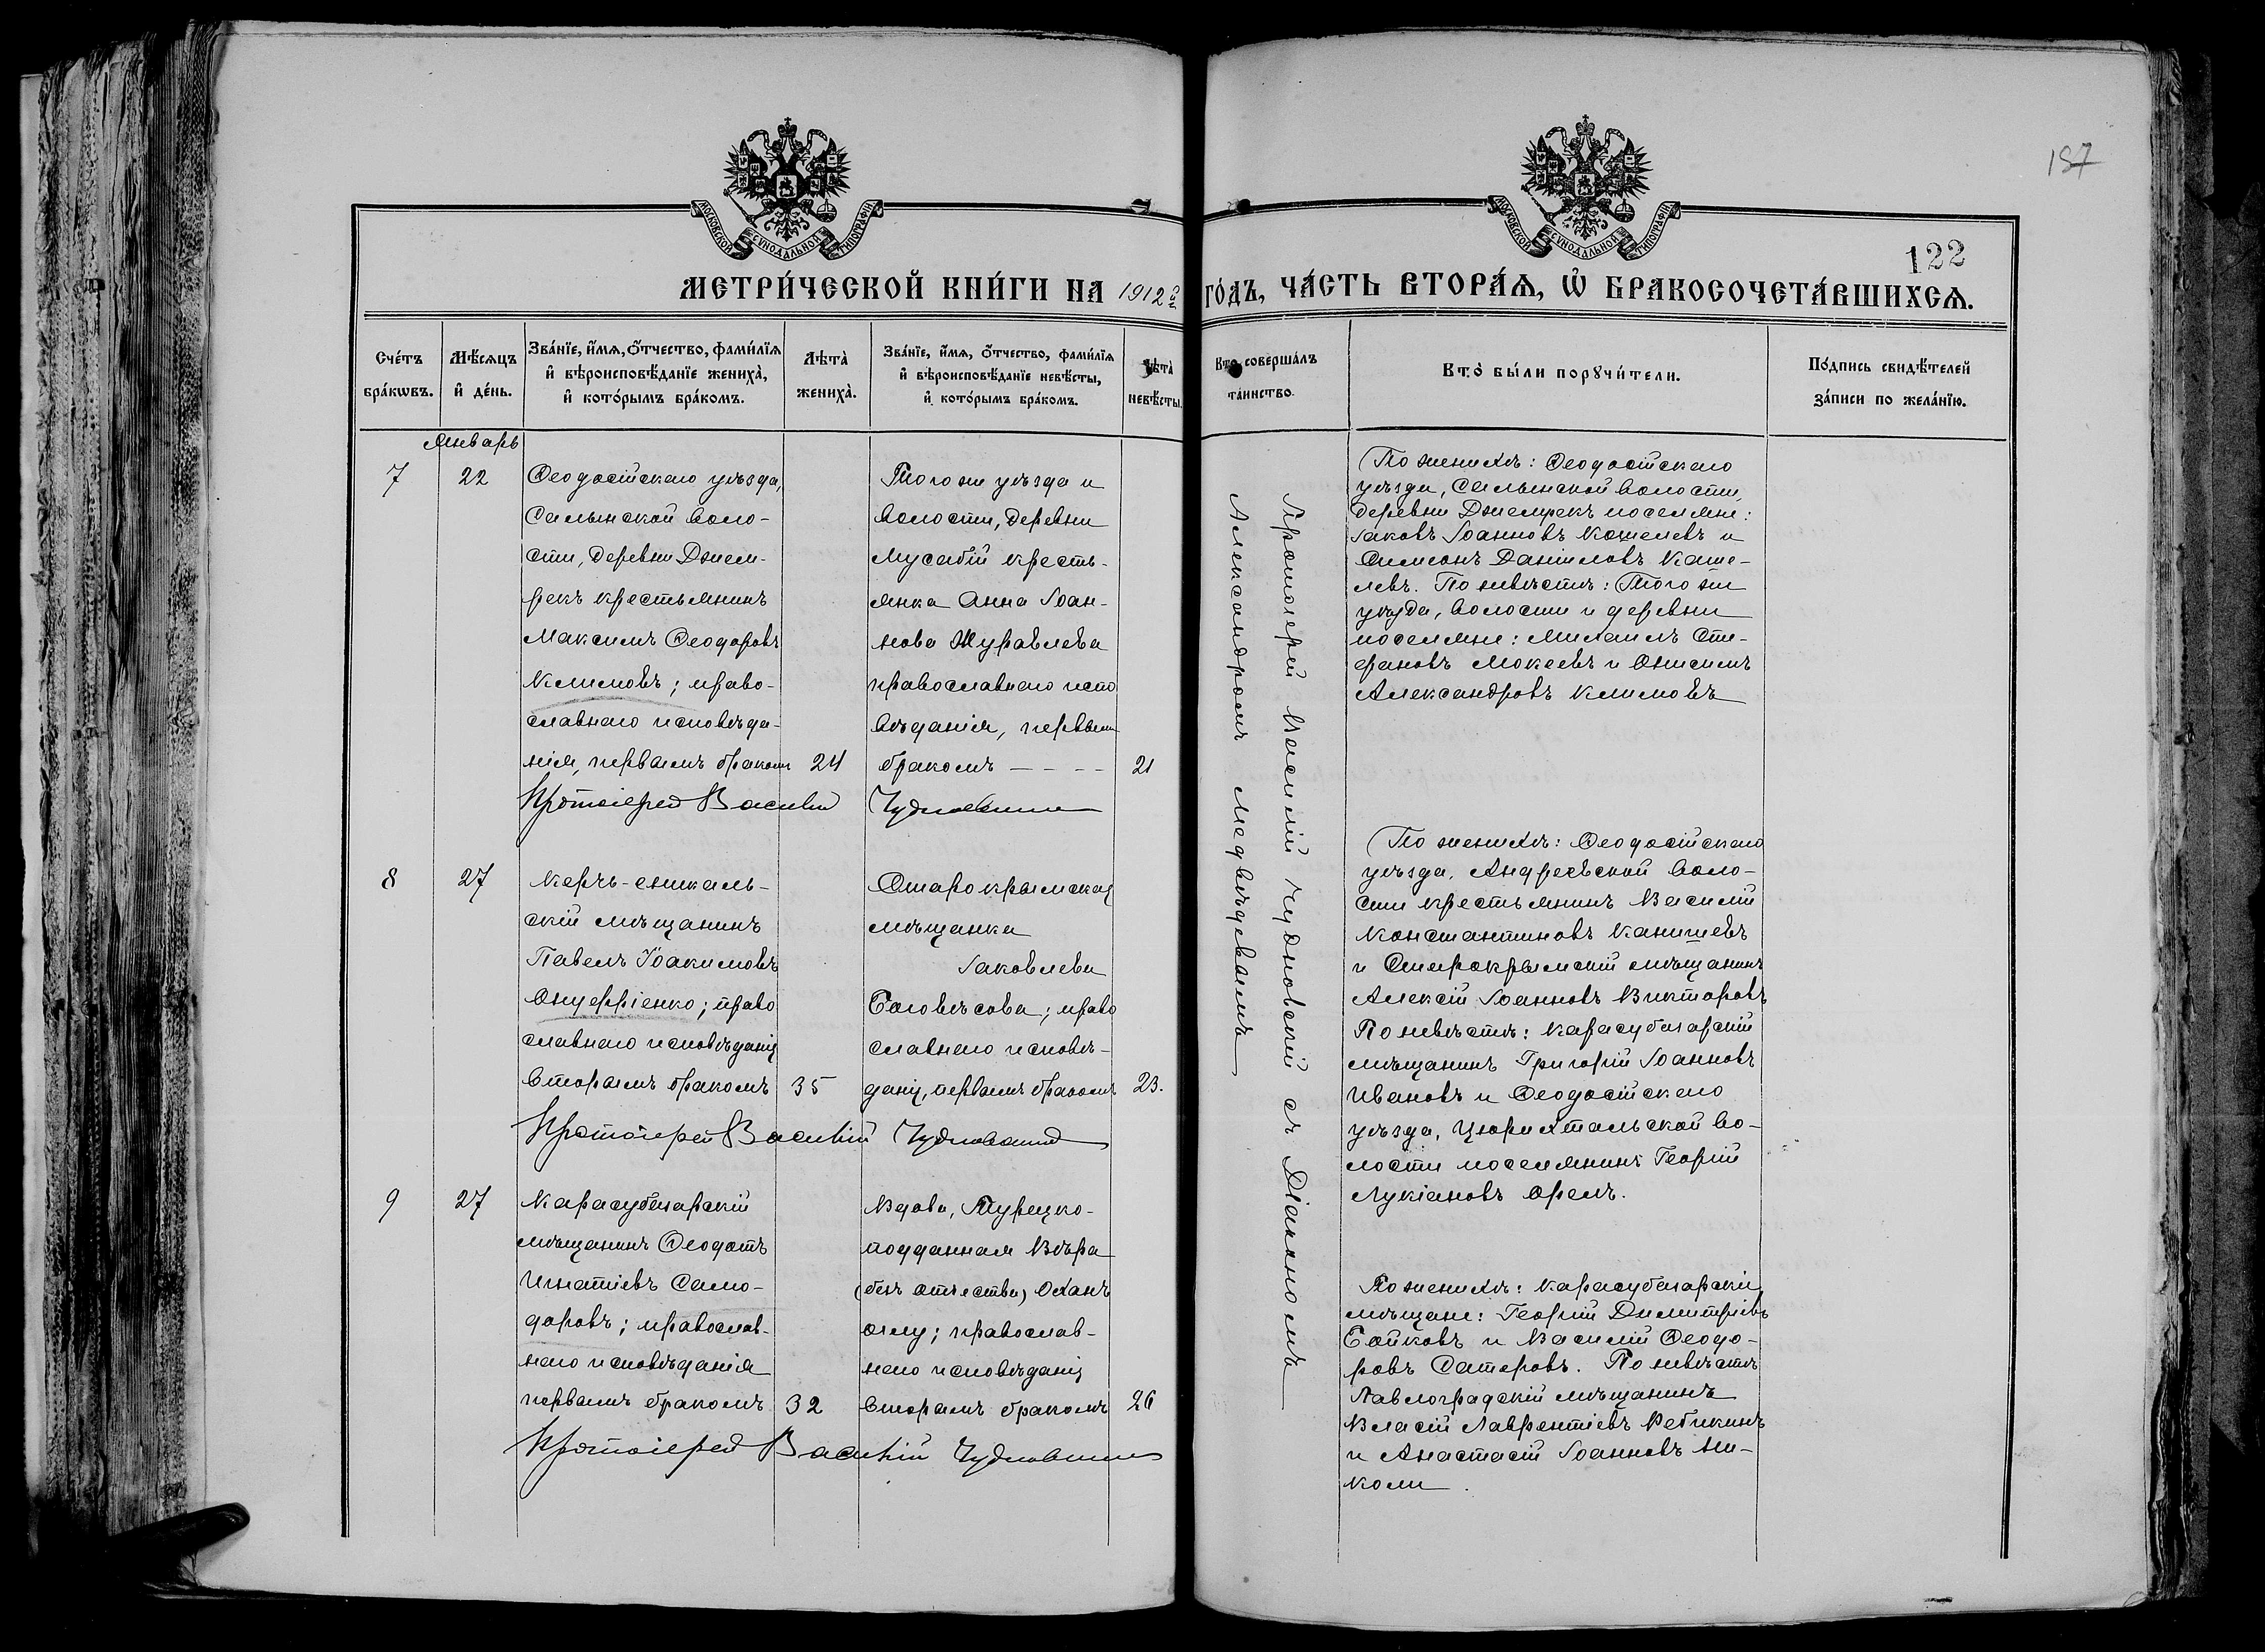 187
122
МОСКОВСКОЙ СѴНОДАЛЬНОЙ ТИПОГРАФІИ
МОСКОВСКОЙ СѴНОДАЛЬНОЙ ТИПОГРАФІИ
МЕТРИ́ЧЕСКОЙ КНИ́ГИ НА 1912й ГО́ДЪ, ЧА́СТЬ ВТОРА́Ѧ, Ѡ҆ БРАКОСОЧЕТА́ВШИХСѦ.
Сче́тъ бра́кѡвъ.
Мѣ́сѧцъ и҆ де́нь.
Зва́нїе, и҆́мѧ, ѻ҆́тчество, фами́лїѧ и҆ вѣроисповѣ́данїе жениха̀, и҆ кото́рымъ бра́комъ.
Лѣта̀ жениха̀.
Зва́нїе, и҆́мѧ, ѻ҆́тчество, фами́лїѧ и҆ вѣроисповѣ́данїе невѣ́сты, и҆ кото́рымъ бра́комъ.
Лѣта̀ невѣ́сты.
Кто̀ соверша́лъ та́инство.
Кто̀ бы́ли порꙋчи́тели.
По́дпись свидѣ́телей за́писи по жела́нїю.
Январь
7
22
Ѳеодосійскаго уѣзда,
Салынской воло-
сти, деревни Джем-
рекъ крестьянинъ
Максимъ Ѳеодоровъ
Климовъ; право-
славнаго исповѣда-
нія, первымъ бракомъ
24
Того же уѣзда и
волости, деревни
Мусабій кресть-
янка Анна Іоан-
нова Журавлева
православнаго испо
вѣданія, первымъ
бракомъ – – – –
21
Протоіерей Василій Чудновскій
По женихѣ: Ѳеодосійскаго
уѣзда, Салынской волости,
деревни Джемрекъ поселяне:
Іаковъ Іоанновъ Кошелевъ и
Симеонъ Даніиловъ Каше-
левъ. По невѣстѣ: Того же
уѣзда, волости и деревни
поселяне: Михаилъ Сте-
фановъ Мокеевъ и Онисимъ
Александровъ Климовъ
8
27
Керчь-еникаль-
скій мѣщанинъ
Павелъ Іоакимовъ
Онуфріенко; право
славнаго исповѣданія
вторымъ бракомъ
35
Старокрымская
мѣщанка
Іаковлева
Боговѣсова; право
славнаго исповѣ-
данія, первымъ бракомъ
23.
Протоіерей Василій Чудновскій
По женихѣ: Ѳеодосійскаго
уѣзда, Андреевской воло-
сти крестьянинъ Василій
Константиновъ Канищевъ
и Старокрымскій мѣщанинъ
Алексій Іоанновъ Викторовъ
По невѣстѣ: Карасубазарскій
мѣщанинъ Григорій Іоанновъ
Ивановъ и Ѳеодосійскаго
уѣзда, Цюрихтальской во-
лости поселянинъ Георгій
Лукіановъ Орелъ.
9
27
Карасубазарскій
мѣщанинъ Ѳеодотъ
Игнатіевъ Само-
доровъ; православ-
наго исповѣданія
первымъ бракомъ
32
Вдова, Турецко-
подданная Вѣра
(безъ отчества) Оханъ
оглу; православ-
наго исповѣданія
вторымъ бракомъ
26
Протоіерей Василій Чудновскій
По женихѣ: Карасубазарскіе
мѣщане: Георгій Димитріевъ
Бойковъ и Василій Ѳеодо-
ровъ Сатеровъ. По невѣстѣ
Павлоградскій мѣщанинъ
Власій Лаврентіевъ Ребикинъ
и Анастасій Іоанновъ Ни-
коли.
Протоіерей Василій Чудновскій съ Діакономъ
Александромъ Медвѣдевымъ